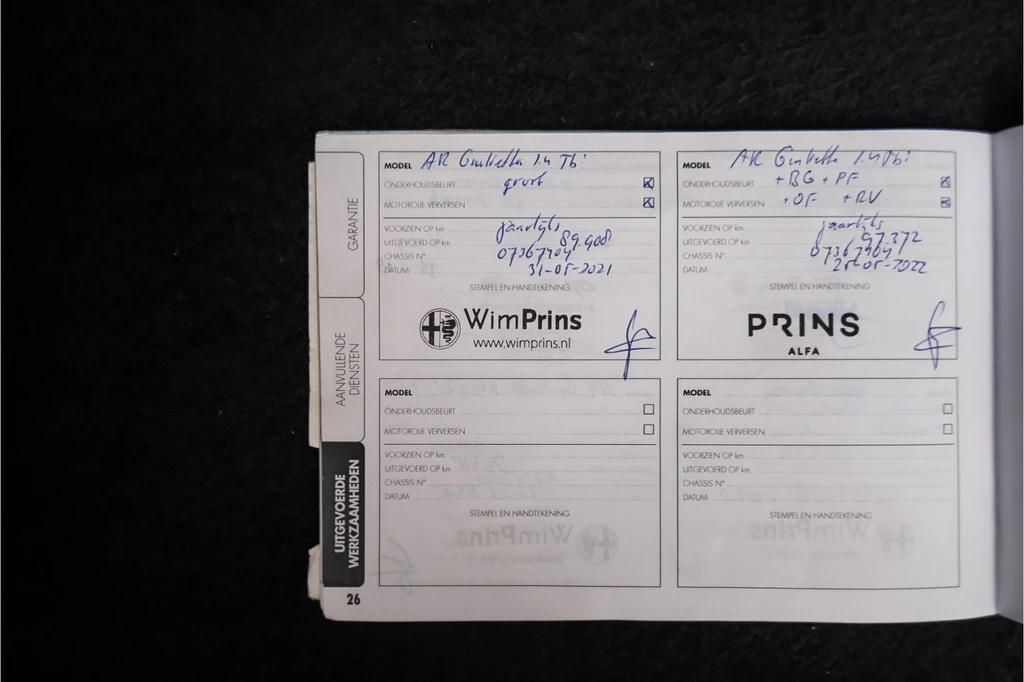 GARANTIE
AANVULLENDE
DIENSTEN
UITGEVOERDE
WERKZAAMHEDEN
26
MODEL AR Giulietta 1.4 Tbi
ONDERHOUDSBEURT groot
MOTOROLIE VERVERSEN
VOORZIEN OP km jaarlijks
UITGEVOERD OP km 89.908
CHASSIS N° 07367404
DATUM 31-05-2021
STEMPEL EN HANDTEKENING
WimPrins
www.wimprins.nl
MODEL AR Giulietta 1.4 Tbi
ONDERHOUDSBEURT +BG +PF
MOTOROLIE VERVERSEN +OF +RV
VOORZIEN OP km jaarlijks
UITGEVOERD OP km 97.272
CHASSIS N° 07367404
DATUM 25-05-2022
STEMPEL EN HANDTEKENING
PRINS
ALFA
MODEL
ONDERHOUDSBEURT
MOTOROLIE VERVERSEN
VOORZIEN OP km
UITGEVOERD OP km
CHASSIS N°
DATUM
STEMPEL EN HANDTEKENING
MODEL
ONDERHOUDSBEURT
MOTOROLIE VERVERSEN
VOORZIEN OP km
UITGEVOERD OP km
CHASSIS N°
DATUM
STEMPEL EN HANDTEKENING